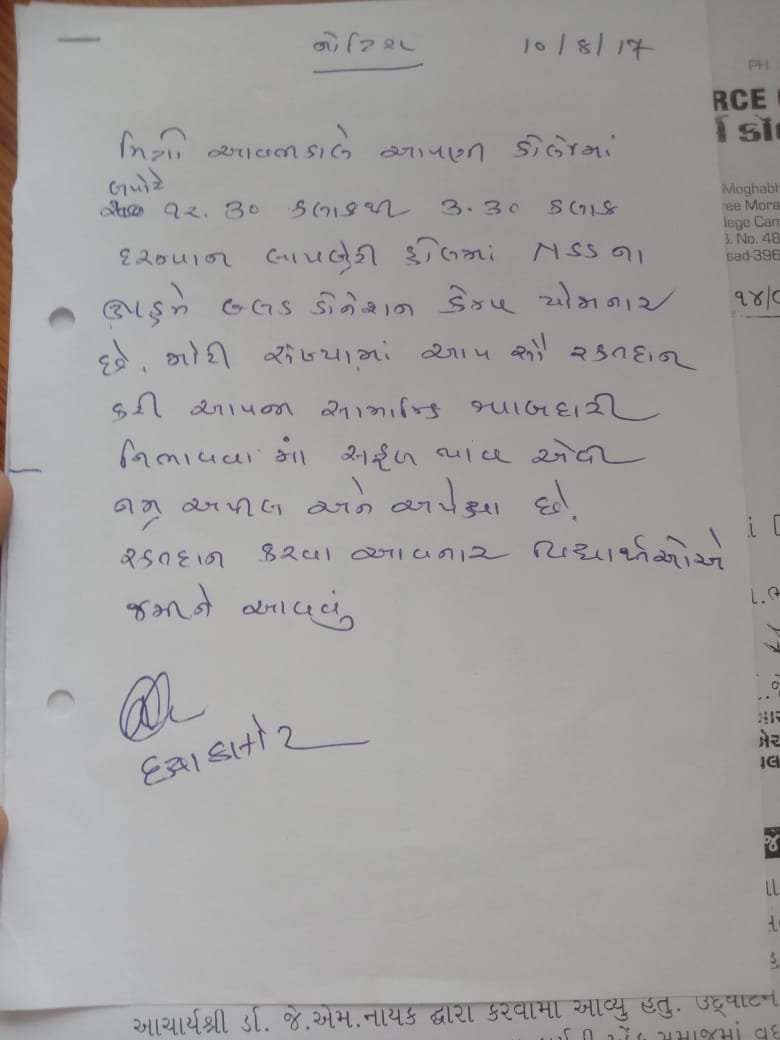 નોટિશ 10/8/17
મિત્રો આવતીકાલે આપણી કોલેજમાં
બપોરે
૧૨.૩૦ કલાકથી ૩.૩૦ કલાક
દરમ્યાન લાયબ્રેરી હૉલમાં NSS ના
ઉપક્રમે બ્લડ ડોનેશન કેમ્પ યોજનાર
છે. મોટી સંખ્યામાં આપ સૌ રક્તદાન
કરી આપની સામાજિક જવાબદારી
નિભાવવા માં સફળ થાવ એવી
નમ્ર અપીલ અને અપેક્ષા છે.
રક્તદાન કરવા આવનાર વિદ્યાર્થીઓએ
જમીને આવવું
PH
RCE
Moghabh
ree Mora
lege Cam
. No. 48
sad-396
૧૪/૦
આચાર્યશ્રી ર્ડા. જે.એમ.નાયક દ્વારા કરવામા આવ્યુ હતુ. ઉદ્ઘાટન